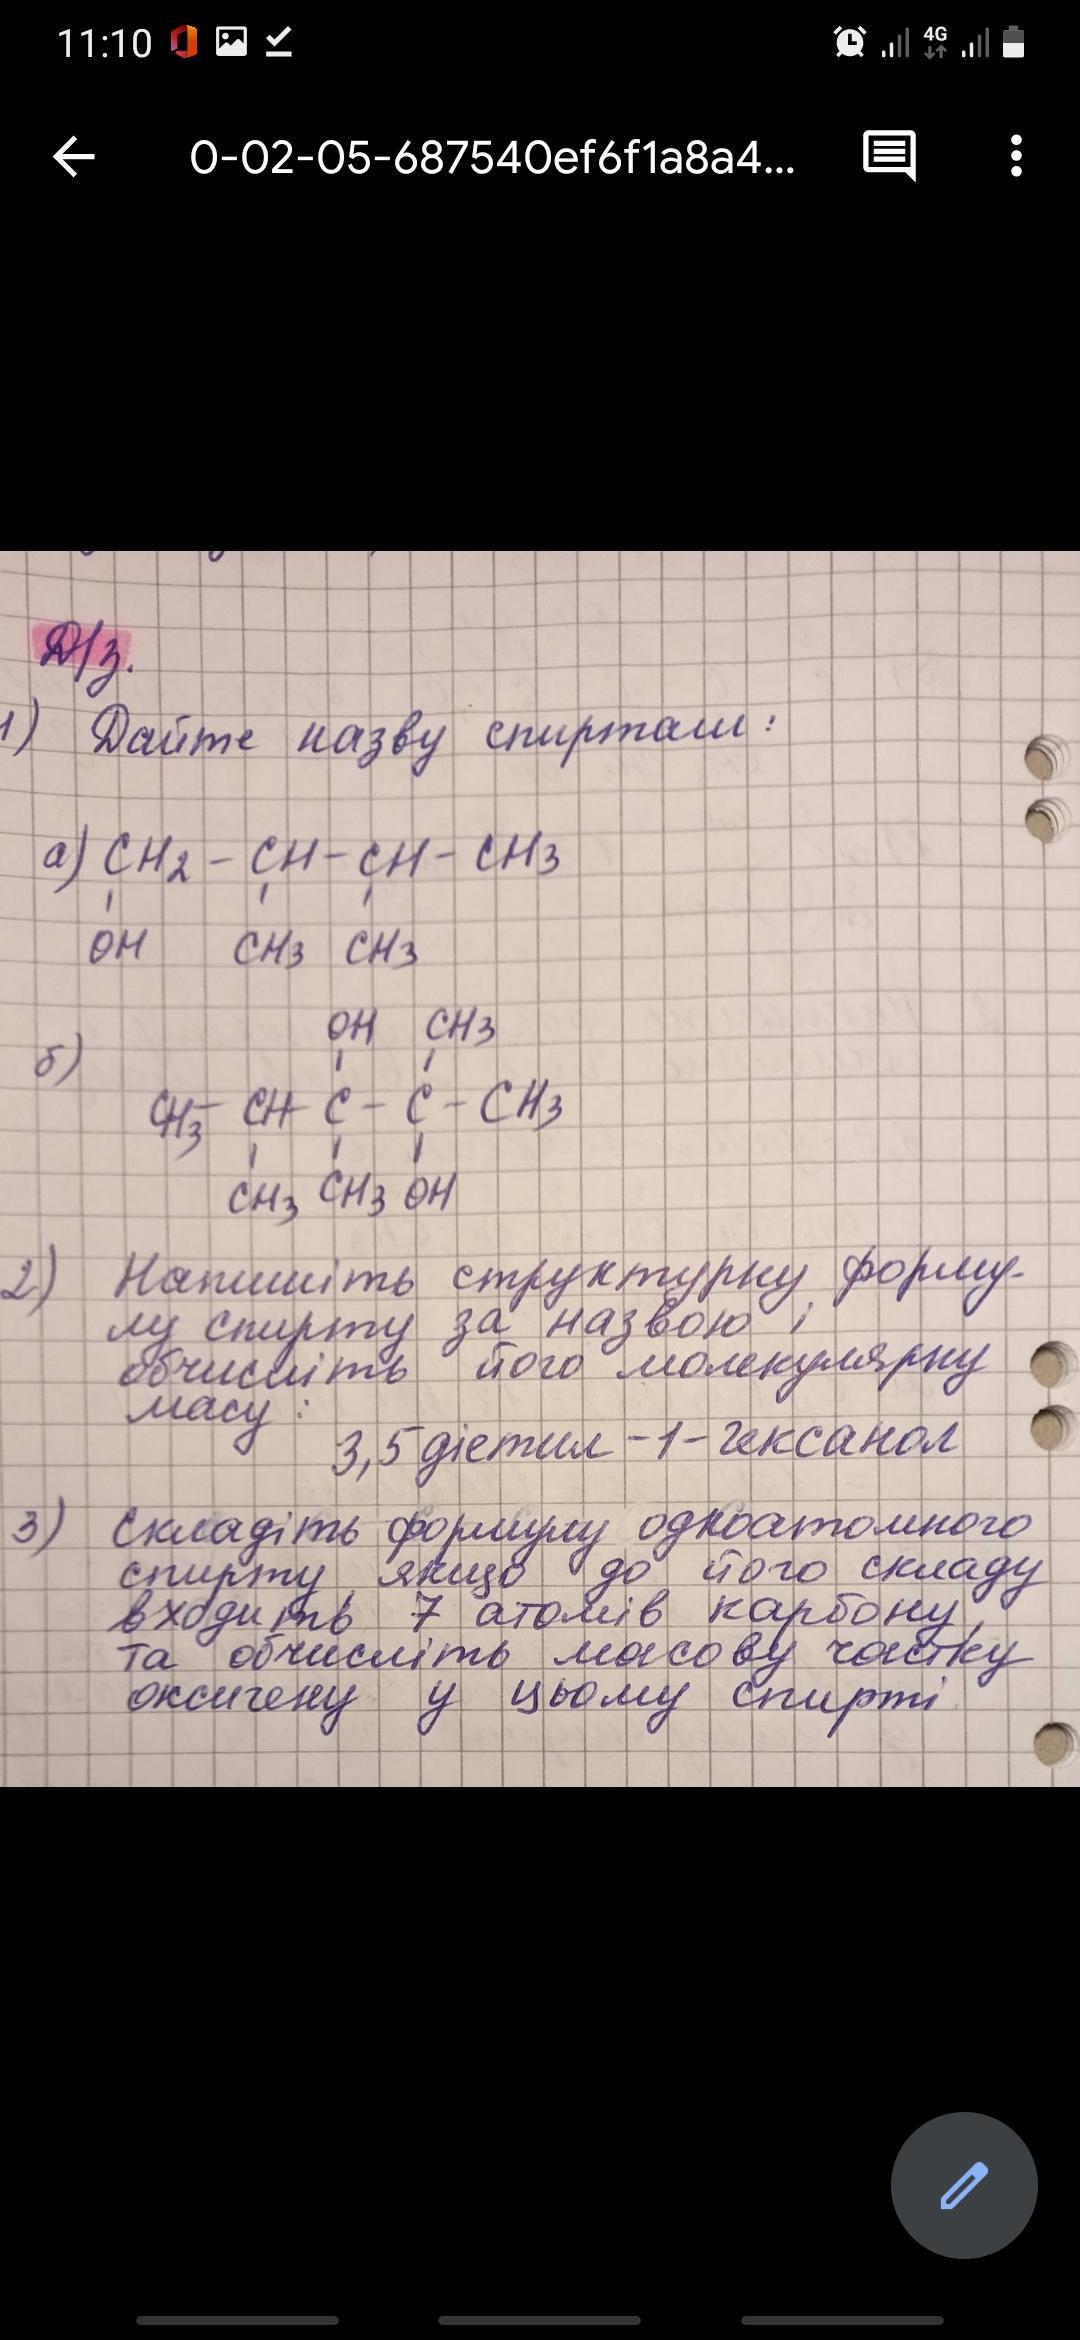 11:10
4G
0-02-05-687540ef6f1a8a4...
Д/з.
1) Дайте назву спиртам:
а) CH2 - CH - CH - CH3
OH CH3 CH3
OH CH3
б)
CH3 - CH - C - C - CH3
CH3 CH3 OH
2) Напишіть структурну форму-
лу спирту за назвою і
обчисліть його молекулярну
масу:
3,5 діетил -1- гексанол
3) Складіть формулу одноатомного
спирту якщо до його складу
входить 7 атомів карбону,
та обчисліть масову частку
оксигену у цьому спирті